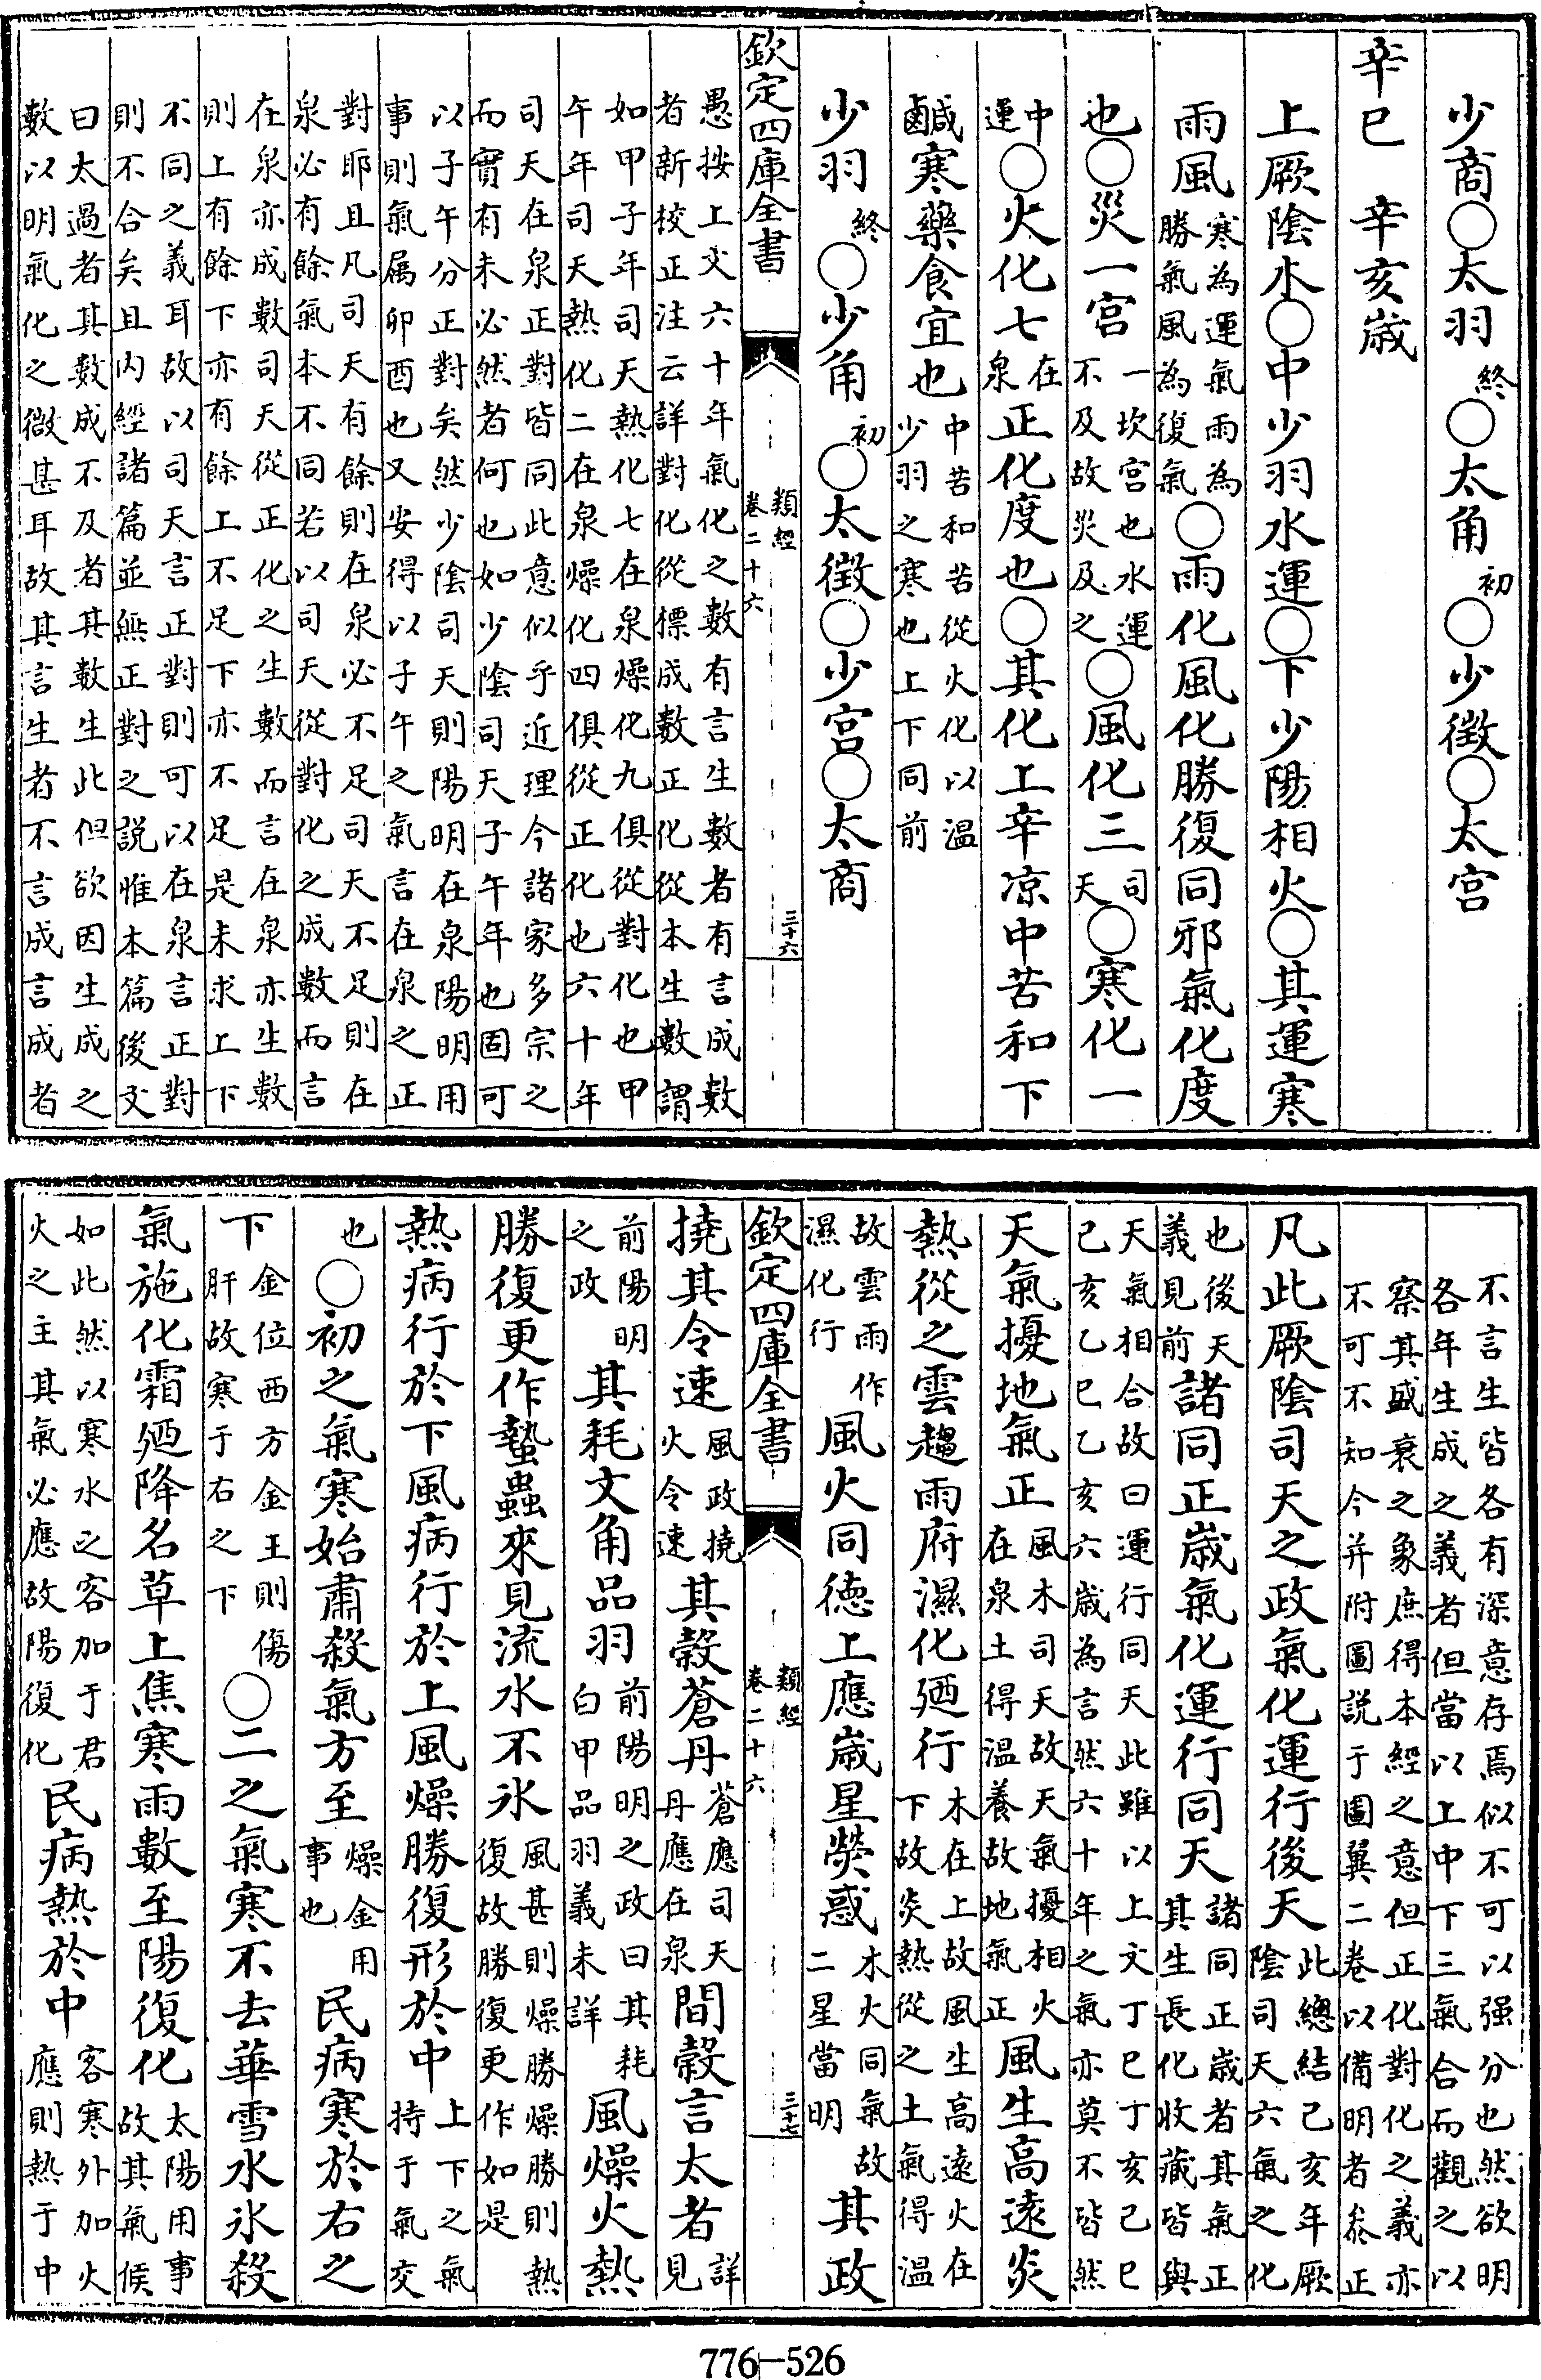 少商○太羽終○太角初○少徵○太宮
辛巳　辛亥歲
上厥陰木○中少羽水運○下少陽相火○其運寒
雨風寒為運氣雨為勝氣風為復氣○雨化風化勝復同邪氣化度
也○災一宮一坎宮也水運不及故災及之○風化三司天○寒化一
中運○火化七在泉正化度也○其化上辛涼中苦和下
鹹寒藥食宜也中苦和苦從火化以溫少羽之寒也上下同前
少羽終○少角初○太徵○少宮○太商
欽定四庫全書
類經
卷二十六
三十六
愚按上文六十年氣化之數有言生數者有言成數
者新校正注云詳對化從標成數正化從本生數謂
如甲子年司天熱化七在泉燥化九俱從對化也甲
午年司天熱化二在泉燥化四俱從正化也六十年
司天在泉正對皆同此意似乎近理今諸家多宗之
而實有未必然者何也如少陰司天子午年也固可
以子午分正對矣然少陰司天則陽明在泉陽明用
事則氣屬卯酉也又安得以子午之氣言在泉之正
對耶且凡司天有餘則在泉必不足司天不足則在
泉必有餘氣本不同若以司天從對化之成數而言
在泉亦成數司天從正化之生數而言在泉亦生數
則上有餘下亦有餘上不足下亦不足是未求上下
不同之義耳故以司天言正對則可以在泉言正對
則不合矣且內經諸篇並無正對之說惟本篇後文
曰太過者其數成不及者其數生此但欲因生成之
數以明氣化之微甚耳故其言生者不言成言成者
不言生皆各有深意存焉似不可以强分也然欲明
各年生成之義者但當以上中下三氣合而觀之以
察其盛衰之象庶得本經之意但正化對化之義亦
不可不知今并附圖說于圖翼二卷以備明者叅正
凡此厥陰司天之政氣化運行後天此總結己亥年厥陰司天六氣之化
也後天義見前諸同正歲氣化運行同天諸同正歲者其氣正其生長化收藏皆與
天氣相合故曰運行同天此雖以上文丁巳丁亥己巳己亥乙巳乙亥六歲為言然六十年之氣亦莫不皆然
天氣擾地氣正風木司天故天氣擾相火在泉土得溫養故地氣正風生高遠炎
熱從之雲趨雨府濕化廼行木在上故風生高遠火在下故炎熱從之土氣得溫
故雲雨作濕化行風火同德上應歲星熒惑木火同氣故二星當明其政
欽定四庫全書
類經
卷二十六
三十七
撓其令速風政撓火令速其穀蒼丹蒼應司天丹應在泉間穀言太者詳見
前陽明之政其耗文角品羽前陽明之政曰其耗白甲品羽義未詳風燥火熱
勝復更作蟄蟲來見流水不氷風甚則燥勝燥勝則熱復故勝復更作如是
熱病行於下風病行於上風燥勝復形於中上下之氣持于氣交
也○初之氣寒始肅殺氣方至燥金用事也民病寒於右之
下金位西方金王則傷肝故寒于右之下○二之氣寒不去華雪水氷殺
氣施化霜廼降名草上焦寒雨數至陽復化太陽用事故其氣候
如此然以寒水之客加于君火之主其氣必應故陽復化民病熱於中客寒外加火應則熱于中
776-526